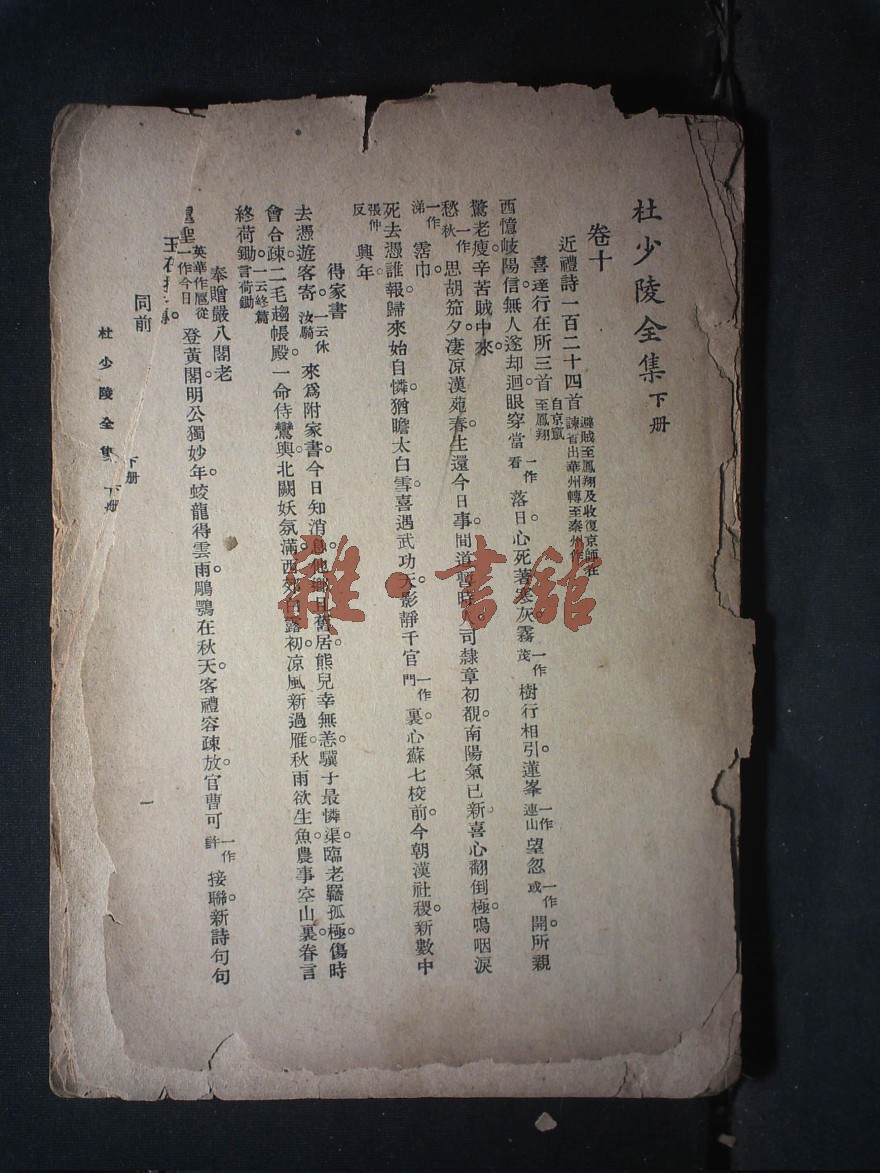 杜少陵全集 下册
卷十
近禮詩一百二十四首 避賊至鳳翔及收復京師在諫省出華州轉至秦州作
喜達行在所三首 自京竄至鳳翔
西憶岐陽信。無人遂却迴。眼穿當一作看落日。心死著寒灰。霧一作茂樹行相引。蓮峯一作連山望忽一作或開。所親
驚老瘦。辛苦賊中來。
愁一作秋思胡笳夕。凄凉漢苑春。生還今日事。間道暫時人。司隸章初覩。南陽氣已新。喜心翻倒極。嗚咽淚
一作涕霑巾。
死去憑誰報。歸來始自憐。猶瞻太白雪。喜遇武功天。影靜千官一作門裏。心蘇七校前。今朝漢社稷。新數中
張仲反興年。
得家書
去憑遊客寄。一云休汝騎來爲附家書。今日知消息。他鄉且舊居。熊兒幸無恙。驥子最憐渠。臨老羈孤極。傷時
會合疎。二毛趨帳殿。一命侍鸞輿。北闕妖氛滿。西郊白露初。凉風新過雁。秋雨欲生魚。農事空山裏。眷言
終荷鋤。一云終篇言荷鋤
奉贈嚴八閣老
英華作扈從
聖一作今日登黃閣。明公獨妙年。蛟龍得雲雨。鵰鶚在秋天。客禮容疎放。官曹可一作許接聯。新詩句句
同前
杜少陵全集 下册
下册
一
雜·書館